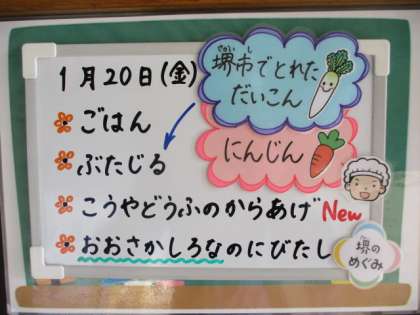 1月20日(金)
堺市でとれた
だいこん
にんじん
ごはん
ぶたじる
こうやどうふのからあげ New
おおさかしろなのにびたし
堺の
めぐみ